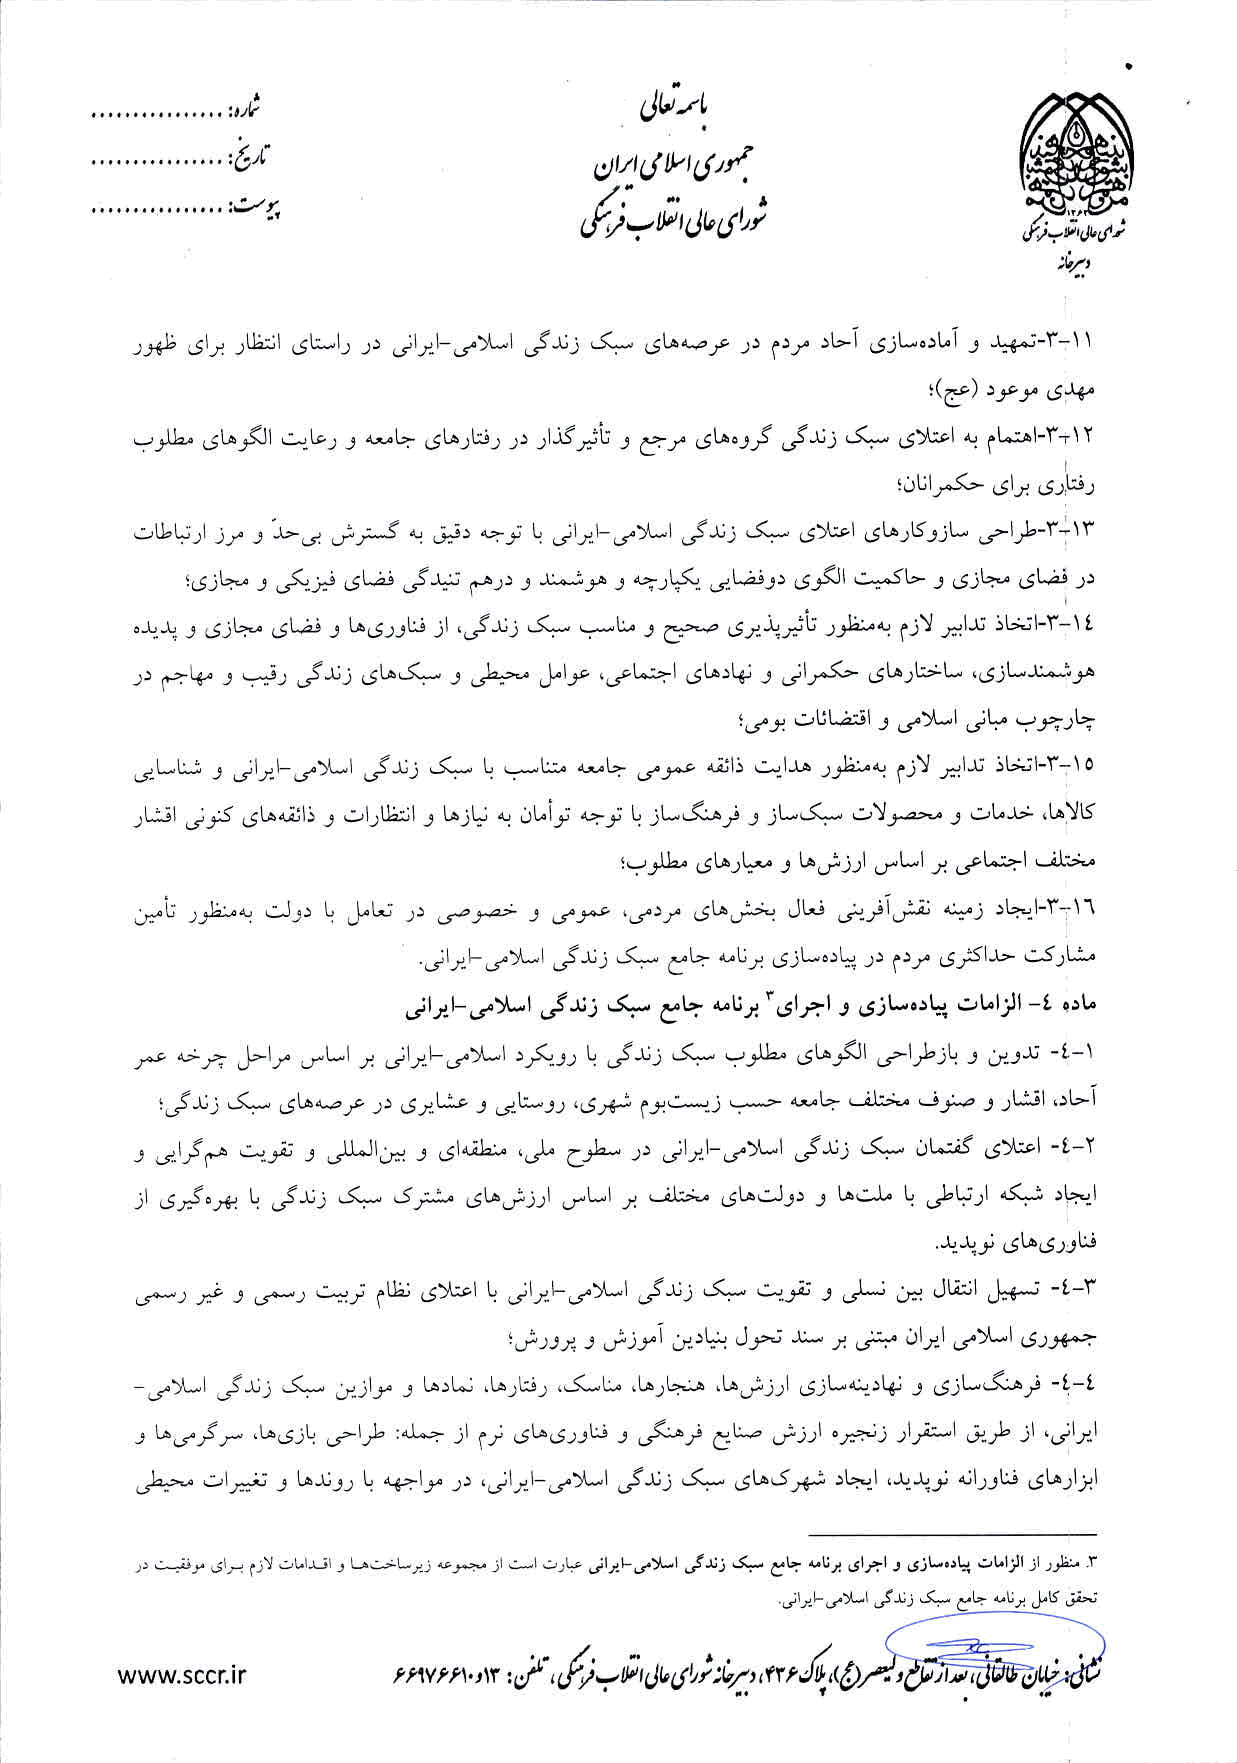 باسمه تعالی
جمهوری اسلامی ایران
شورای عالی انقلاب فرهنگی
شماره: ................
تاریخ: ................
پیوست: ................
۱۳۶۳
شورای عالی انقلاب فرهنگی
دبیرخانه
۳-۱۱-تمهید و آماده‌سازی آحاد مردم در عرصه‌های سبک زندگی اسلامی-ایرانی در راستای انتظار برای ظهور
مهدی موعود (عج)؛
۳-۱۲-اهتمام به اعتلای سبک زندگی گروه‌های مرجع و تأثیرگذار در رفتارهای جامعه و رعایت الگوهای مطلوب
رفتاری برای حکمرانان؛
۳-۱۳-طراحی سازوکارهای اعتلای سبک زندگی اسلامی-ایرانی با توجه دقیق به گسترش بی‌حدّ و مرز ارتباطات
در فضای مجازی و حاکمیت الگوی دوفضایی یکپارچه و هوشمند و درهم تنیدگی فضای فیزیکی و مجازی؛
۳-۱٤-اتخاذ تدابیر لازم به‌منظور تأثیرپذیری صحیح و مناسب سبک زندگی، از فناوری‌ها و فضای مجازی و پدیده
هوشمندسازی، ساختارهای حکمرانی و نهادهای اجتماعی، عوامل محیطی و سبک‌های زندگی رقیب و مهاجم در
چارچوب مبانی اسلامی و اقتضائات بومی؛
۳-۱٥-اتخاذ تدابیر لازم به‌منظور هدایت ذائقه عمومی جامعه متناسب با سبک زندگی اسلامی-ایرانی و شناسایی
کالاها، خدمات و محصولات سبک‌ساز و فرهنگ‌ساز با توجه توأمان به نیازها و انتظارات و ذائقه‌های کنونی اقشار
مختلف اجتماعی بر اساس ارزش‌ها و معیارهای مطلوب؛
۳-۱٦-ایجاد زمینه نقش‌آفرینی فعال بخش‌های مردمی، عمومی و خصوصی در تعامل با دولت به‌منظور تأمین
مشارکت حداکثری مردم در پیاده‌سازی برنامه جامع سبک زندگی اسلامی-ایرانی.
ماده ٤- الزامات پیاده‌سازی و اجرای۳ برنامه جامع سبک زندگی اسلامی-ایرانی
٤-۱- تدوین و بازطراحی الگوهای مطلوب سبک زندگی با رویکرد اسلامی-ایرانی بر اساس مراحل چرخه عمر
آحاد، اقشار و صنوف مختلف جامعه حسب زیست‌بوم شهری، روستایی و عشایری در عرصه‌های سبک زندگی؛
٤-۲- اعتلای گفتمان سبک زندگی اسلامی-ایرانی در سطوح ملی، منطقه‌ای و بین‌المللی و تقویت هم‌گرایی و
ایجاد شبکه ارتباطی با ملت‌ها و دولت‌های مختلف بر اساس ارزش‌های مشترک سبک زندگی با بهره‌گیری از
فناوری‌های نوپدید.
٤-۳- تسهیل انتقال بین نسلی و تقویت سبک زندگی اسلامی-ایرانی با اعتلای نظام تربیت رسمی و غیر رسمی
جمهوری اسلامی ایران مبتنی بر سند تحول بنیادین آموزش و پرورش؛
٤-٤- فرهنگ‌سازی و نهادینه‌سازی ارزش‌ها، هنجارها، مناسک، رفتارها، نمادها و موازین سبک زندگی اسلامی-
ایرانی، از طریق استقرار زنجیره ارزش صنایع فرهنگی و فناوری‌های نرم از جمله: طراحی بازی‌ها، سرگرمی‌ها و
ابزارهای فناورانه نوپدید، ایجاد شهرک‌های سبک زندگی اسلامی-ایرانی، در مواجهه با روندها و تغییرات محیطی
۳. منظور از الزامات پیاده‌سازی و اجرای برنامه جامع سبک زندگی اسلامی-ایرانی عبارت است از مجموعه زیرساخت‌ها و اقدامات لازم برای موفقیت در
تحقق کامل برنامه جامع سبک زندگی اسلامی-ایرانی.
نشانی: خیابان طالقانی، بعد از تقاطع ولیعصر (عج)، پلاک ۴۳۶، دبیرخانه شورای عالی انقلاب فرهنگی، تلفن: ۱۳و۶۶۹۷۶۶۱۰
www.sccr.ir